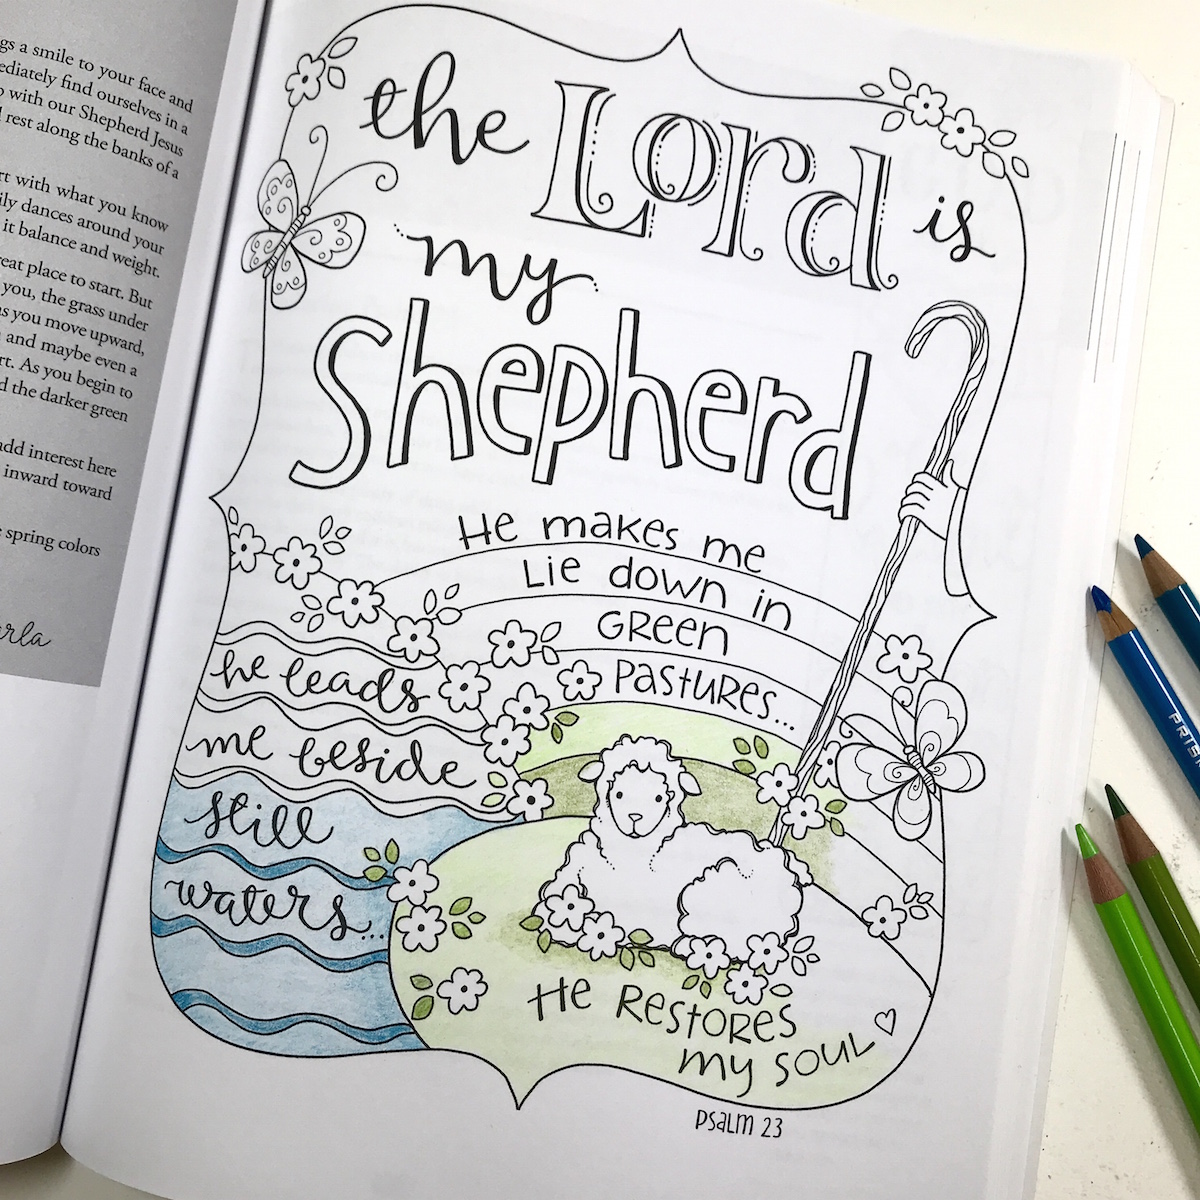 gs a smile to your face and
ediately find ourselves in a
with our Shepherd Jesus
rest along the banks of a
rt with what you know
ily dances around your
it balance and weight.
reat place to start. But
you, the grass under
as you move upward,
and maybe even a
rt. As you begin to
d the darker green
add interest here
inward toward
spring colors
arla
the Lord is
my
Shepherd
He makes me
Lie down in
GREEN
PASTURES...
he leads
me beside
still
waters...
He RESTORES
my SOUL
PSALM 23
PRIS